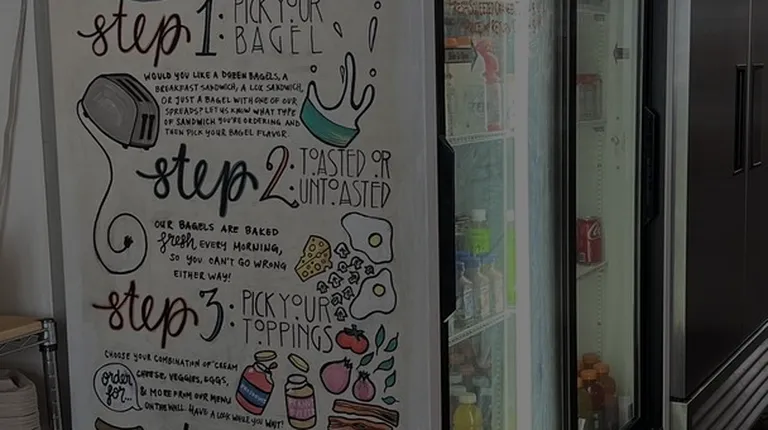 step 1: PICK YOUR
BAGEL
WOULD YOU LIKE A DOZEN BAGELS, A
BREAKFAST SANDWICH, A LOX SANDWICH,
OR JUST A BAGEL WITH ONE OF OUR
SPREADS? LET US KNOW WHAT TYPE
OF SANDWICH YOU'RE ORDERING AND
THEN PICK YOUR BAGEL FLAVOR.
step 2: TOASTED OR
UNTOASTED
OUR BAGELS ARE BAKED
fresh EVERY MORNING,
SO YOU CAN'T GO WRONG
EITHER WAY!
step 3: PICK YOUR
TOPPINGS
CHOOSE YOUR COMBINATION OF CREAM
CHEESE, VEGGIES, EGGS,
& MORE FROM OUR MENU
ON THE WALL. HAVE A LOOK WHILE YOU WAIT!
order
for...